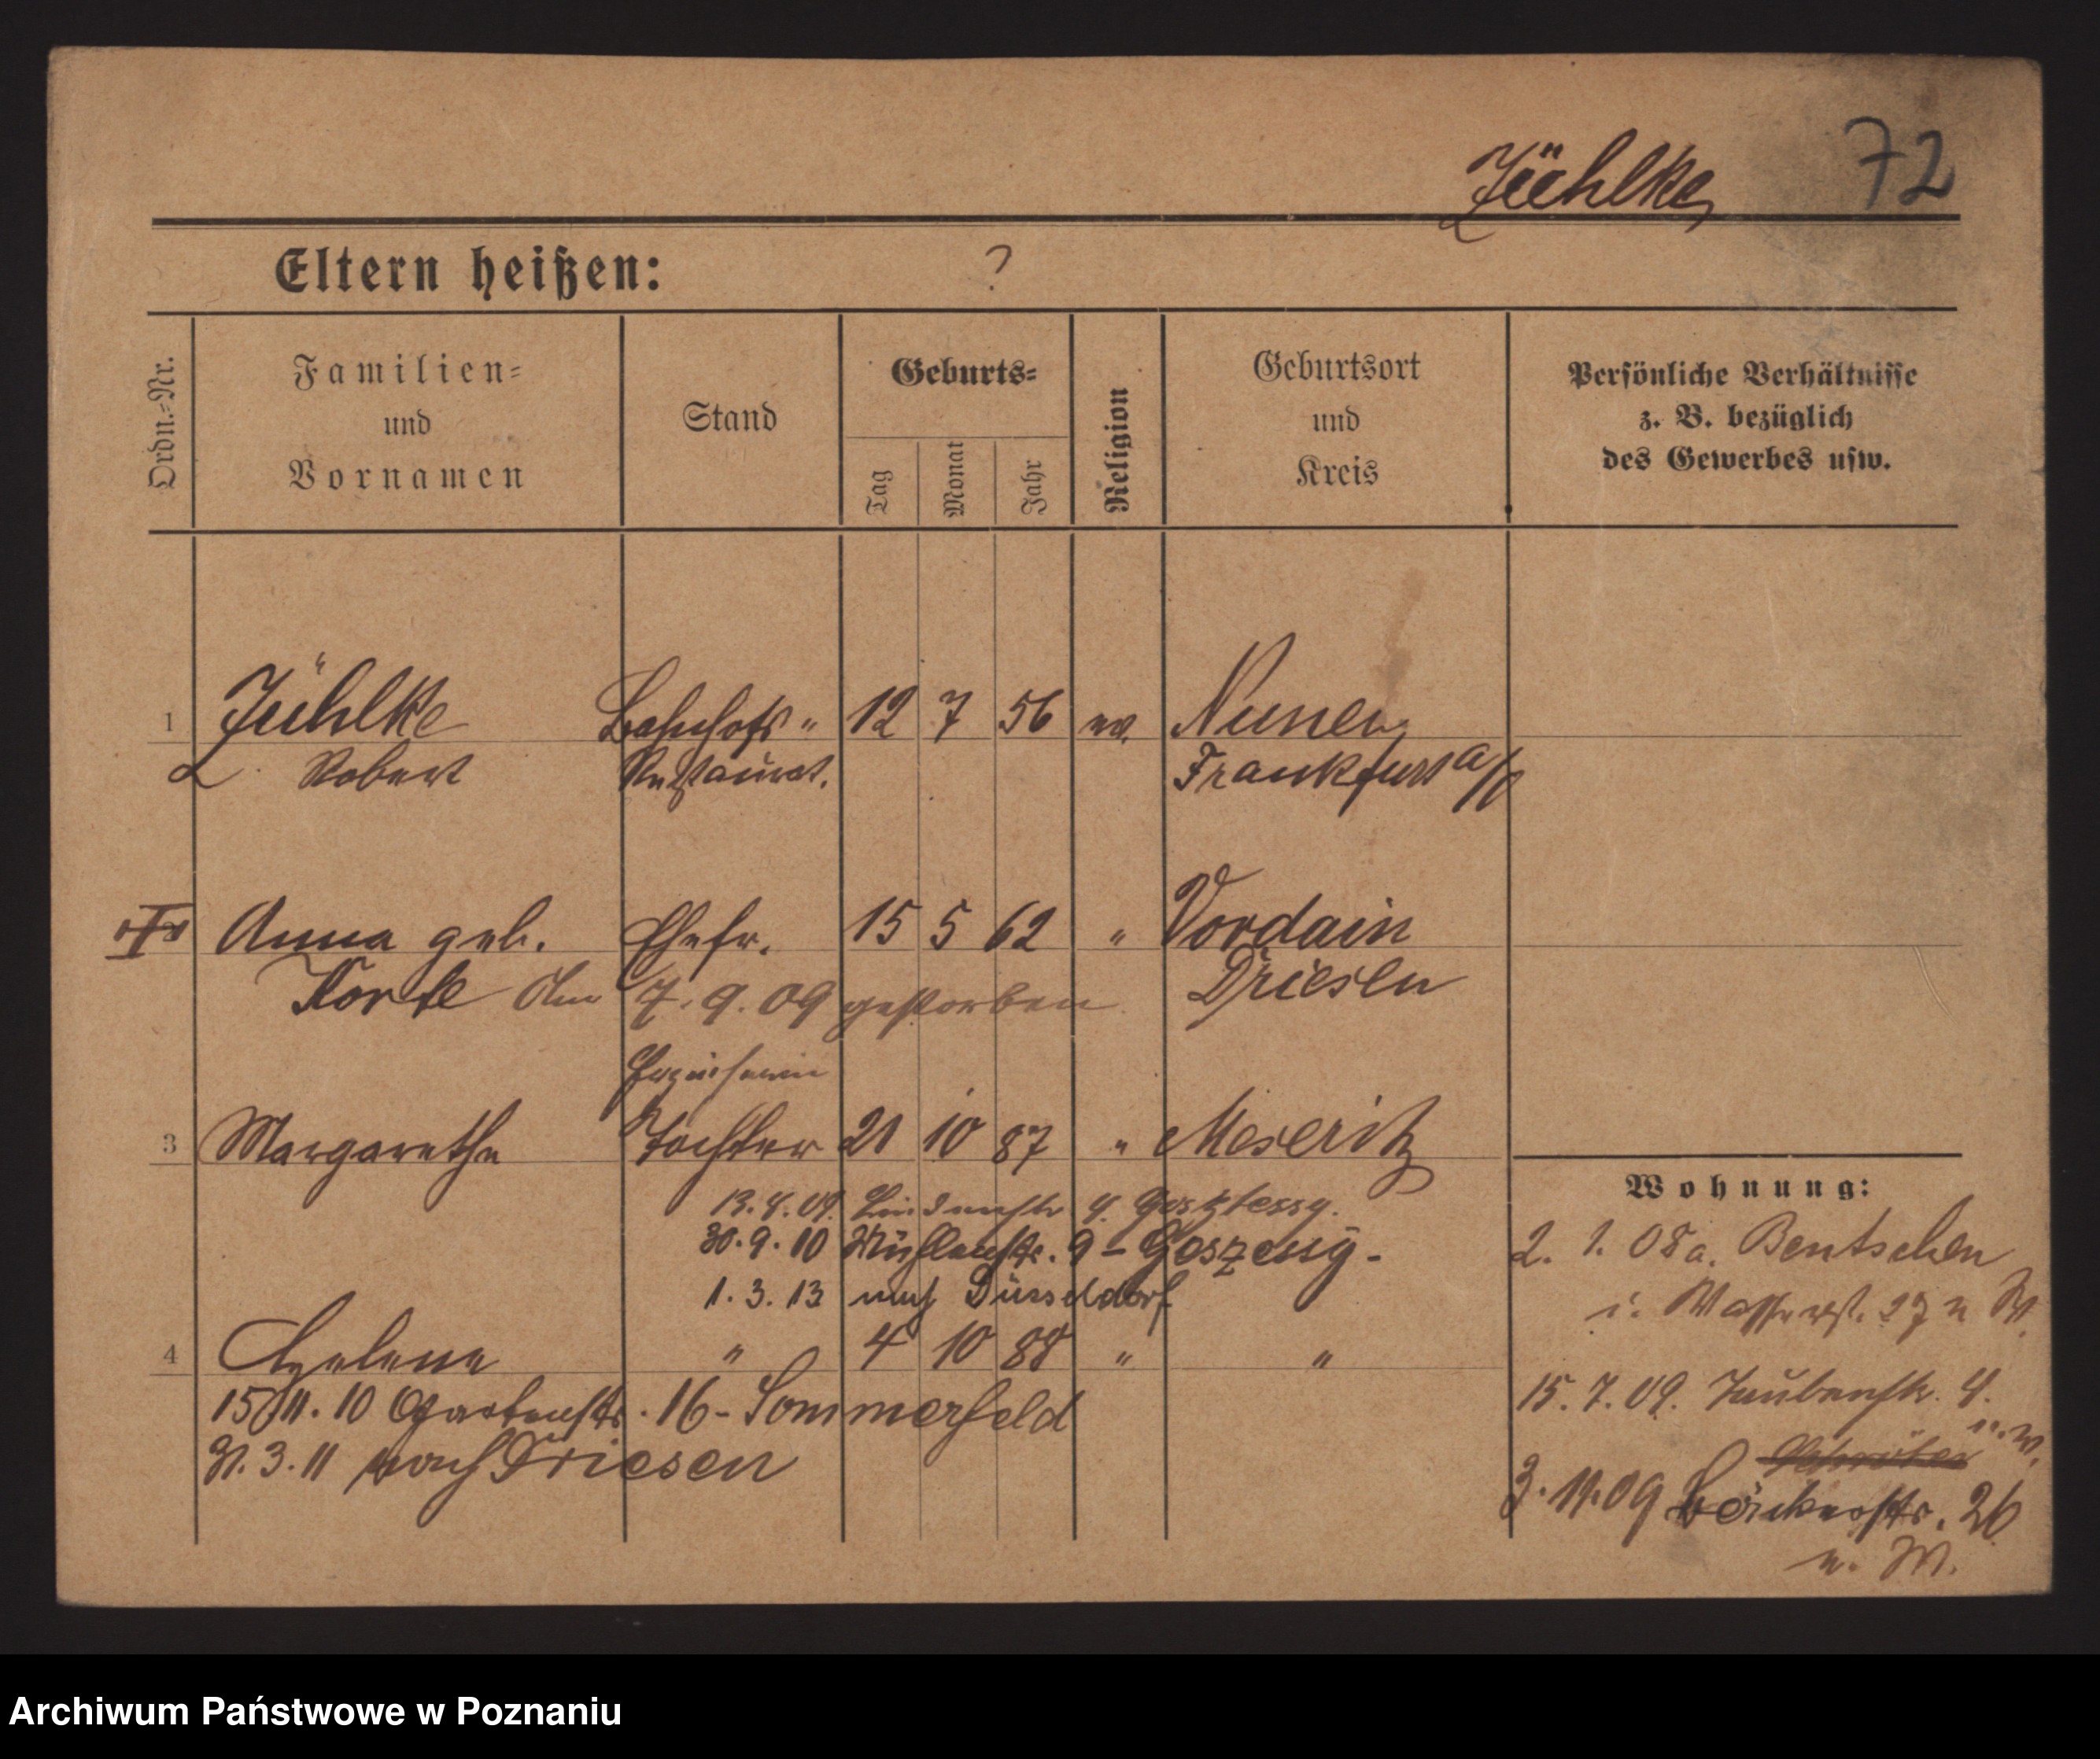 Jühlke 72
Eltern heißen: ?
Ordn.-Nr.
Familien-
und
Vornamen
Stand
Geburts-
Tag
Monat
Jahr
Religion
Geburtsort
und
Kreis
Persönliche Verhältnisse
z. B. bezüglich
des Gewerbes usw.
1 Jühlke Bahnhofs- 12 7 56 ev. Kunen
Robert Restaurat. Frankfurt a/O
Anna geb. Ehefr. 15 5 62 " Vordain
Korte Am 7. 9. 09 gestorben Driesen
3 Margarethe Tochter 21 10 87 " Meseritz
13. 4. 09. Lindenstr 4.
30. 9. 10 Mühlenstr. 9 -
1. 3. 13 nach Düsseldorf
4 Helene " 4 10 88 " "
15/11. 10 Gartenstr. 16 - Sommerfeld
31. 3. 11 nach Driesen
Wohnung:
2. 1. 08 a. Bentschen
i. 27 u W.
15. 7. 09. Taubenstr. 4.
u. W.
3. 11. 09 26
u. M.
Archiwum Państwowe w Poznaniu